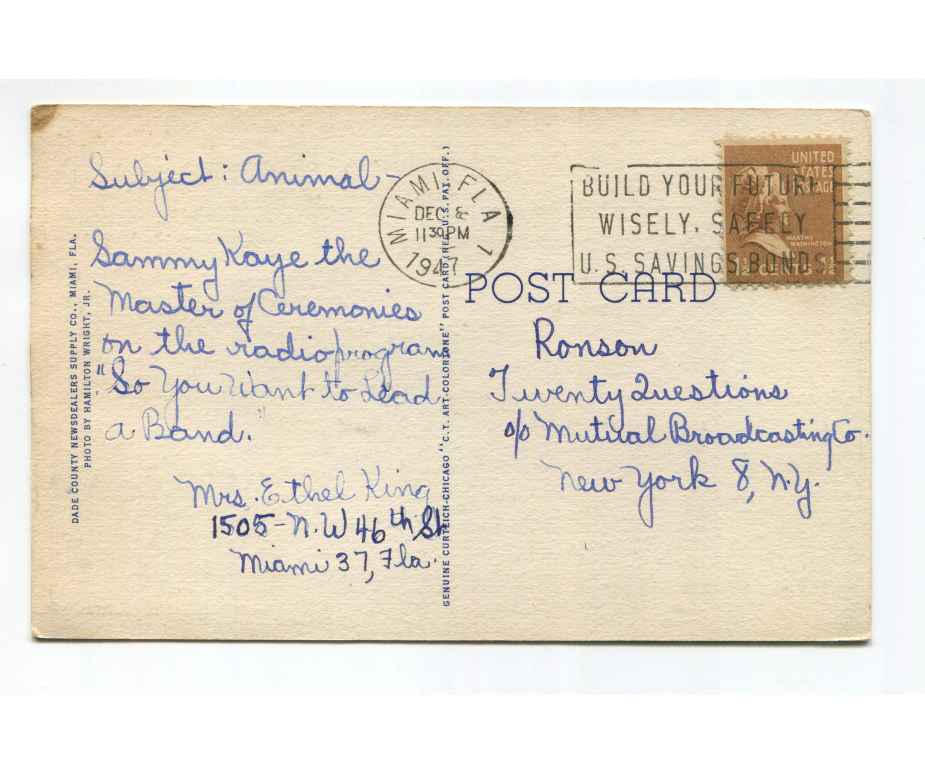 Subject: Animal -
Sammy Kaye the
Master of Ceremonies
on the radio program
"So You Want to Lead
a Band."
Mrs. Ethel King
1505-N.W 46th St
Miami 37, Fla.
DADE COUNTY NEWSDEALERS SUPPLY CO., MIAMI, FLA.
PHOTO BY HAMILTON WRIGHT, JR.
GENUINE CURTEICH-CHICAGO "C.T. ART-COLORTONE" POST CARD (REG. U.S. PAT. OFF.)
MIAMI, FLA. 1
DEC 8
11 30 PM
1947
BUILD YOUR FUTURE
WISELY, SAFELY
U.S. SAVINGS BONDS
UNITED
STATES
POSTAGE
MARTHA
WASHINGTON
POST CARD
Ronson
Twenty Questions
c/o Mutual Broadcasting Co.
New York 8, N.Y.